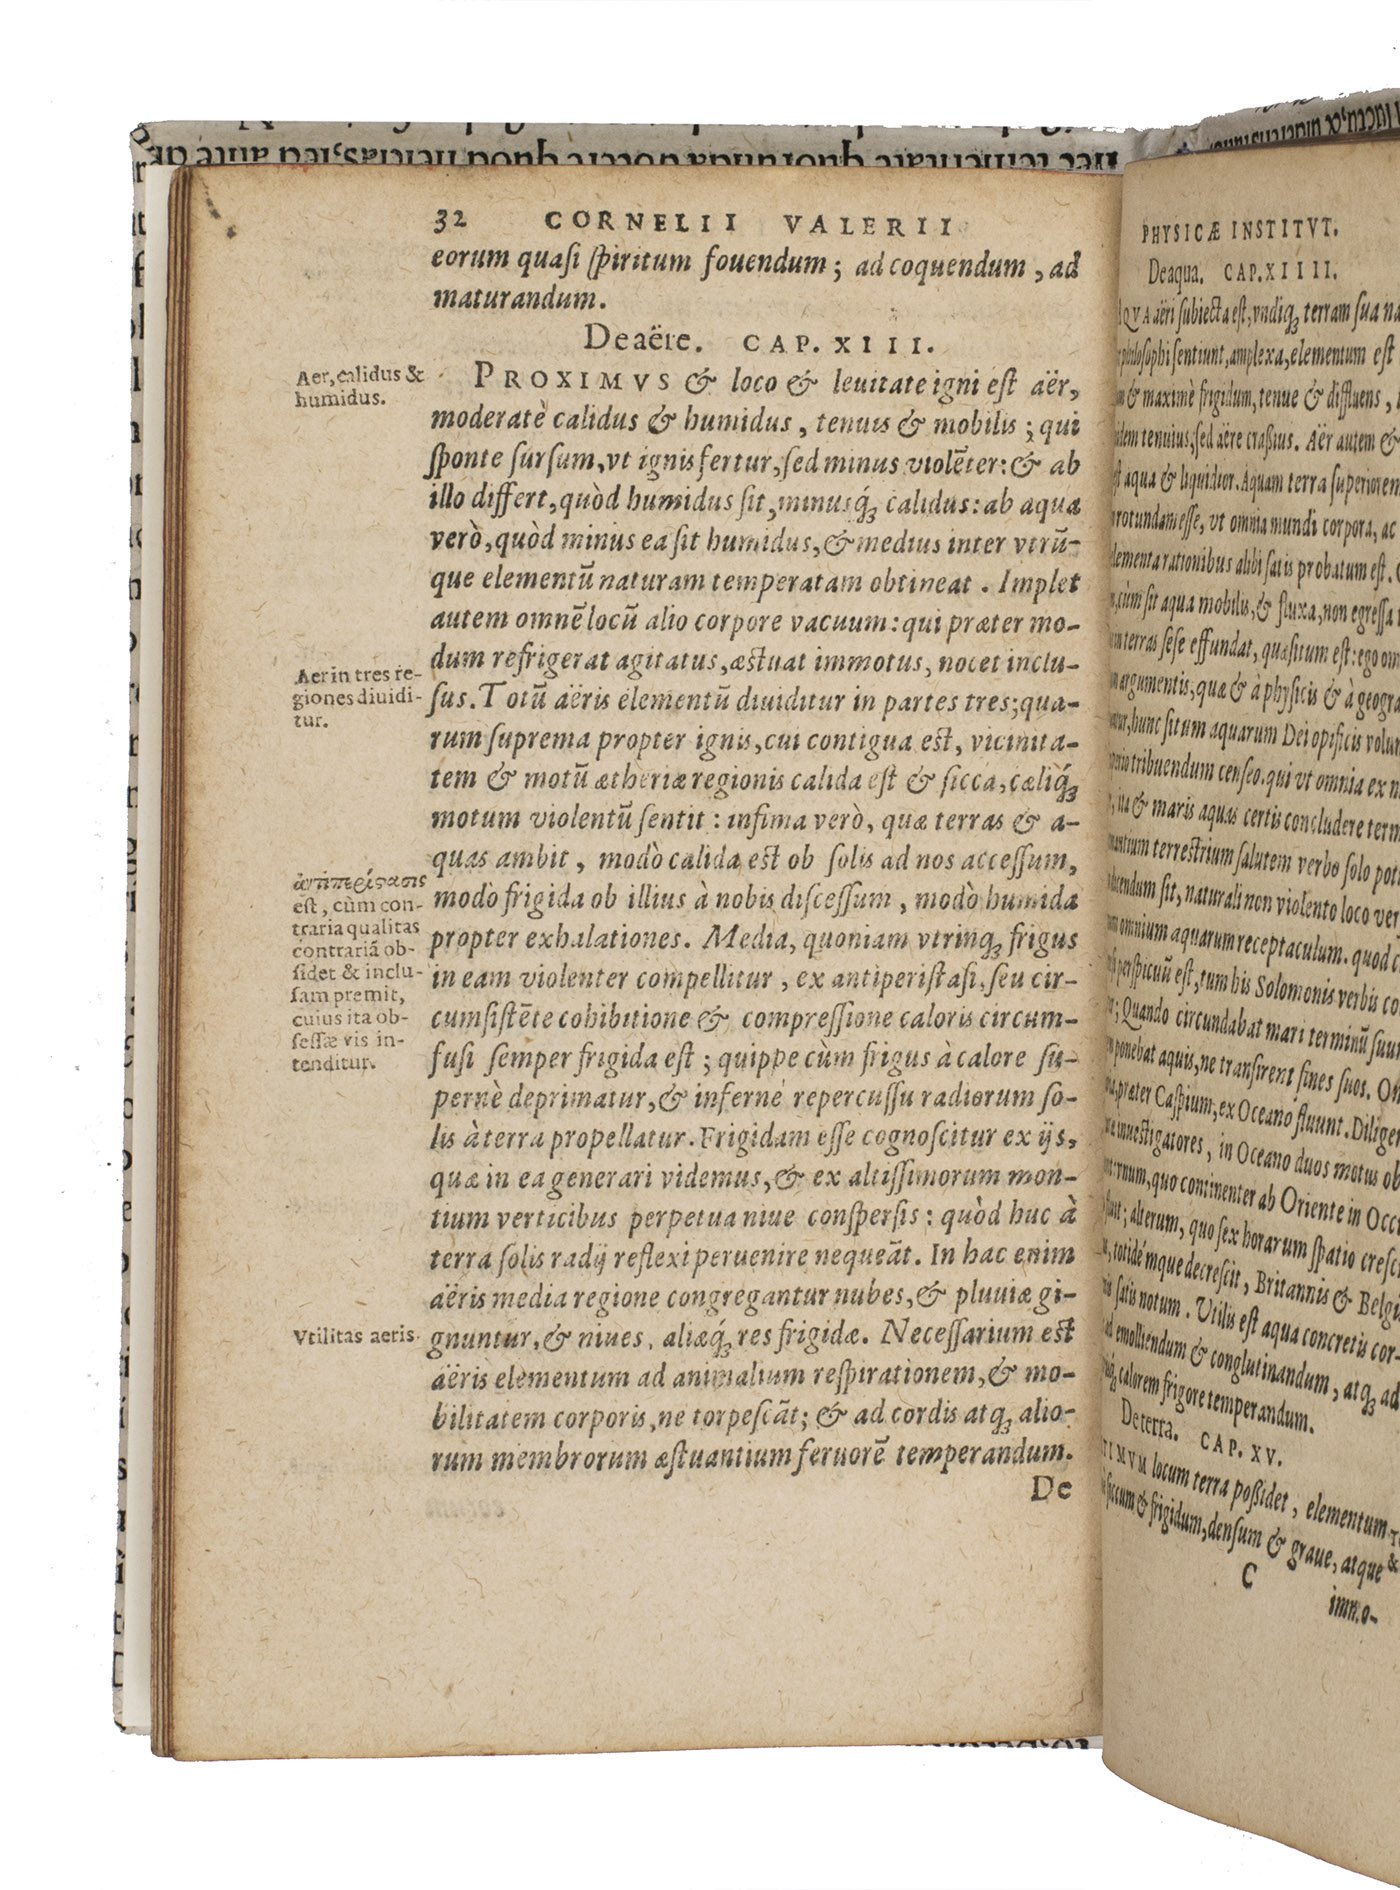 32 CORNELII VALERII
eorum quasi spiritum fouendum; ad coquendum, ad
maturandum.
De aëre. CAP. XIII.
Aer, calidus &
humidus.
PROXIMVS & loco & leuitate igni est aër,
moderatè calidus & humidus, tenuis & mobilis; qui
sponte sursum, vt ignis fertur, sed minus violẽter: & ab
illo differt, quòd humidus sit, minusq́ꝫ calidus: ab aqua
verò, quòd minus ea sit humidus, & medius inter vtrũ-
que elementũ naturam temperatam obtineat. Implet
autem omnẽ locũ alio corpore vacuum: qui præter mo-
dum refrigerat agitatus, æstuat immotus, nocet inclu-
Aer in tres re-
giones diuidi-
tur.
sus. Totũ aëris elementũ diuiditur in partes tres; qua-
rum suprema propter ignis, cui contigua est, vicinita-
tem & motũ ætheriæ regionis calida est & sicca, cæliq́ꝫ
motum violentũ sentit: infima verò, quæ terras & a-
quas ambit, modò calida est ob solis ad nos accessum,
modò frigida ob illius à nobis discessum, modò humida
propter exhalationes. Media, quoniam vtrinqꝫ frigus
in eam violenter compellitur, ex antiperistasi, seu cir-
cumsistẽte cohibitione & compressione caloris circum-
fusi semper frigida est; quippe cùm frigus à calore su-
pernè deprimatur, & infernè repercussu radiorum so-
lis à terra propellatur. Frigidam esse cognoscitur ex ijs,
quæ in ea generari videmus, & ex altissimorum mon-
tium verticibus perpetua niue conspersis: quòd huc à
terra solis radij reflexi peruenire nequeãt. In hac enim
aëris media regione congregantur nubes, & pluuiæ gi-
gnuntur, & niues, aliæq́ꝫ res frigidæ. Necessarium est
aëris elementum ad animalium respirationem, & mo-
bilitatem corporis, ne torpescãt; & ad cordis atqꝫ alio-
rum membrorum æstuantium feruorẽ temperandum.
De
ἀντιπερίστασις
est, cùm con-
traria qualitas
contrariã ob-
sidet & inclu-
sam premit,
cuius ita ob-
sessæ vis in-
tenditur.
Vtilitas aeris.
PHYSICÆ INSTITVT.
De aqua. CAP. XIIII.
QVA aëri subiecta est, vndiqꝫ terram sua na
philosophi sentiunt, amplexa, elementum est
& maximè frigidum, tenue & diffluens,
idem tenuius, sed aëre crassius. Aër autem &
aqua & liquidior. Aquam terra superiorem
rotundam esse, vt omnia mundi corpora, ac
elementa rationibus alibi satis probatum est.
cùm sit aqua mobilis, & fluxa, non egressa
terras sese effundat, quæsitum est: ego om
argumentis, quæ & à physicis & à geogra
hunc situm aquarum Dei opificis volun
tribuendum censeo. qui vt omnia ex n
ita & maris aquas certis concludere term
terrestrium salutem verbo solo pot
sit, naturali non violento loco ver
omnium aquarum receptaculum. quod c
perspicuũ est, tum his Solomonis verbis co
Quando circundabat mari terminũ suum
ponebat aquis, ne transirent fines suos. Om
præter Caspium, ex Oceano fluunt. Diligen
inuestigatores, in Oceano duos motus ob
quo continenter ab Oriente in Occ
alterum, quo sex horarum spatio cresci
totidémque decrescit, Britannis & Belgi
satis notum. Vtilis est aqua concretis cor-
emolliendum & conglutinandum, atqꝫ ad
calorem frigore temperandum.
De terra. CAP. XV.
locum terra possidet, elementum
siccum & frigidum, densum & graue, atque
C
immo-